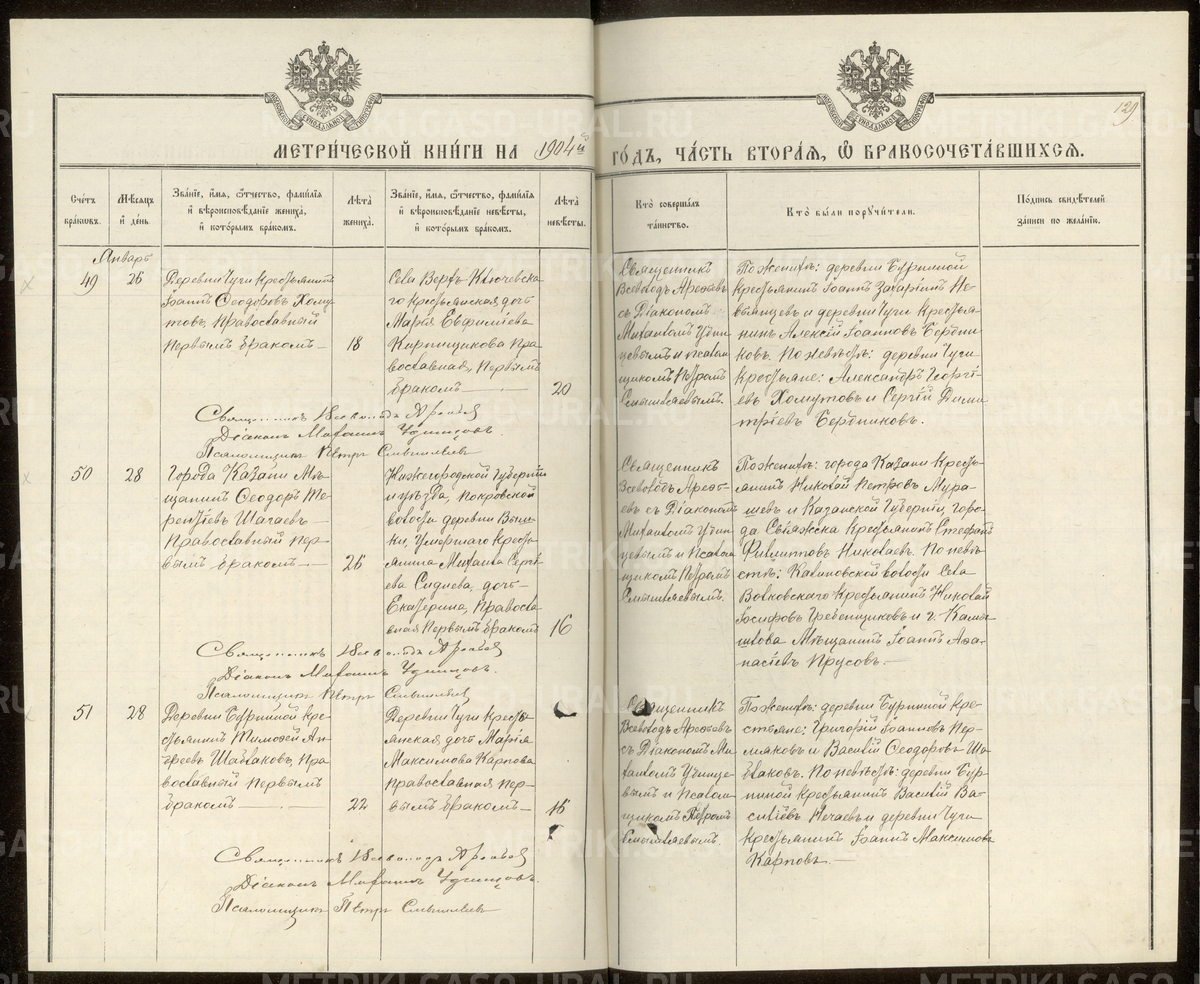 МЕТРИЧЕСКОЙ КНИГИ НА 1904й ГОДЪ, ЧАСТЬ ВТОРАЯ, Ѡ БРАКОСОЧЕТАВШИХСЯ.
129
Счетъ браковъ.
Мѣсяцъ и день.
Званіе, имя, ѿчество, фамилія
и вѣроисповѣданіе жениха,
и которымъ бракомъ.
Лѣта жениха.
Званіе, имя, ѿчество, фамилія
и вѣроисповѣданіе невѣсты,
и которымъ бракомъ.
Лѣта невѣсты.
Кто совершалъ таинство.
Кто были поручители.
Подпись свидѣтелей записи по желанію.
Январь
49
26
Деревни Чуги крестьянинъ
Іоаннъ Ѳеодоровъ Хому-
товъ, Православный
первымъ бракомъ
18
Села Верхъ Ключевска-
го крестьянская дочь
Марія Евфиміева
Кирпищикова Пра-
вославная, Первымъ
бракомъ
20
Священникъ
Всеволодъ
съ Діакономъ
Михаиломъ Удин-
цевымъ и псалом-
щикомъ Петромъ
Смышляевымъ.
По женихѣ: деревни Буриной
крестьянинъ Іоаннъ Захаріинъ Не-
вьянцевъ и деревни Чуги Крестья-
нинъ Алексій Іоанновъ Бердни-
ковъ. По невѣстѣ: деревни Чуги
крестьяне: Александръ Георгі-
евъ Хомутовъ и Сергій Дими-
тріевъ Бердниковъ.
Священникъ Всеволодъ
Діаконъ Михаилъ Удинцовъ.
Псаломщикъ Петръ Смышляевъ
50
28
Города Казани Мѣ-
щанинъ Ѳеодоръ Те-
рентіевъ
Православный пер-
вымъ бракомъ
26
Нижегородской Губерніи
и уѣзда, Покровской
волости деревни
умершаго кресть-
янина Михаила Сергі-
ева дочь
Екатерина, Правосла-
вная Первымъ бракомъ
16
Священникъ
Всеволодъ
съ Діакономъ
Михаиломъ Удин-
цевымъ и Псалом-
щикомъ Петромъ
Смышляевымъ.
По женихѣ: города Казани Кресть-
янинъ Николай Петровъ Мура-
шевъ и Казанской Губерніи, горо-
да Свіяжска Крестьянинъ Стефанъ
Филипповъ Николаевъ. По невѣ-
стѣ: Калиновской волости Села
Волковскаго Крестьянинъ Николай
Іосифовъ Гребенщиковъ и г. Камы-
шлова Мѣщанинъ Іоаннъ Аѳа-
насіевъ Прусовъ.
Священникъ Всеволодъ
Діаконъ Михаилъ Удинцовъ.
Псаломщикъ Петръ Смышляевъ
51
28
Деревни Буриной кре-
стьянинъ Тимоѳей Ан-
дреевъ Шаблаковъ, Пра-
вославный первымъ
бракомъ
22
Деревни Чуги Кресть-
янская дочь Марія
Максимова Карпова
Православная пер-
вымъ бракомъ
Священникъ
Всеволодъ
съ Діакономъ Ми-
хаиломъ Удинце-
вымъ и Псалом-
щикомъ Петромъ
Смышляевымъ.
По женихѣ: деревни Буриной кре-
стьяне: Григорій Іоанновъ Пер-
мяковъ и Василій Ѳеодоровъ Ша-
блаковъ. По невѣстѣ: деревни Бу-
риной крестьянинъ Василій Ва-
силіевъ Нечаевъ и деревни Чуги
крестьянинъ Іоаннъ Максимовъ
Карповъ.
Священникъ Всеволодъ
Діаконъ Михаилъ Удинцовъ.
Псаломщикъ Петръ Смышляевъ
METRIKI.GASO-URAL.RU